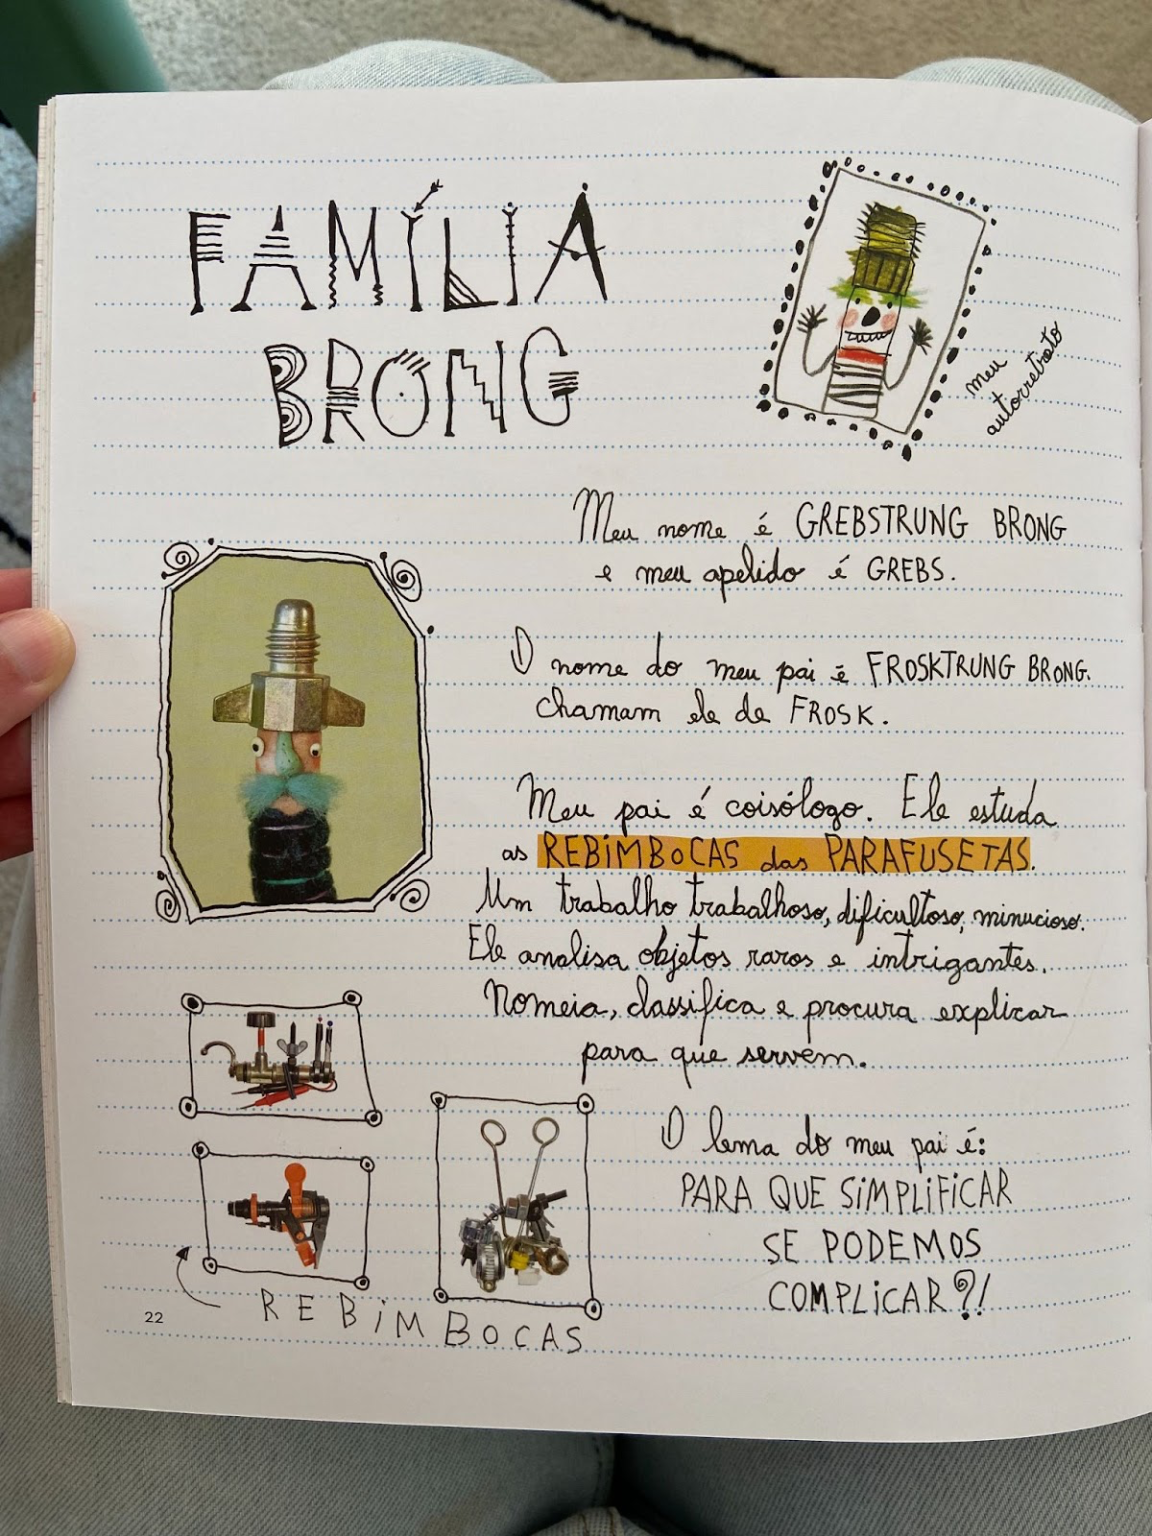 FAMÍLIA
BRONG
meu
autorretrato
Meu nome é GREBSTRUNG BRONG
e meu apelido é GREBS.
O nome do meu pai é FROSKTRUNG BRONG.
chamam ele de FROSK.
Meu pai é coisólogo. Ele estuda
as REBIMBOCAS das PARAFUSETAS.
Um trabalho trabalhoso, dificultoso, minucioso.
Ele analisa objetos raros e intrigantes.
Nomeia, classifica e procura explicar
para que servem.
O lema do meu pai é:
PARA QUE SIMPLIFICAR
SE PODEMOS
COMPLICAR?!
REBIMBOCAS
22